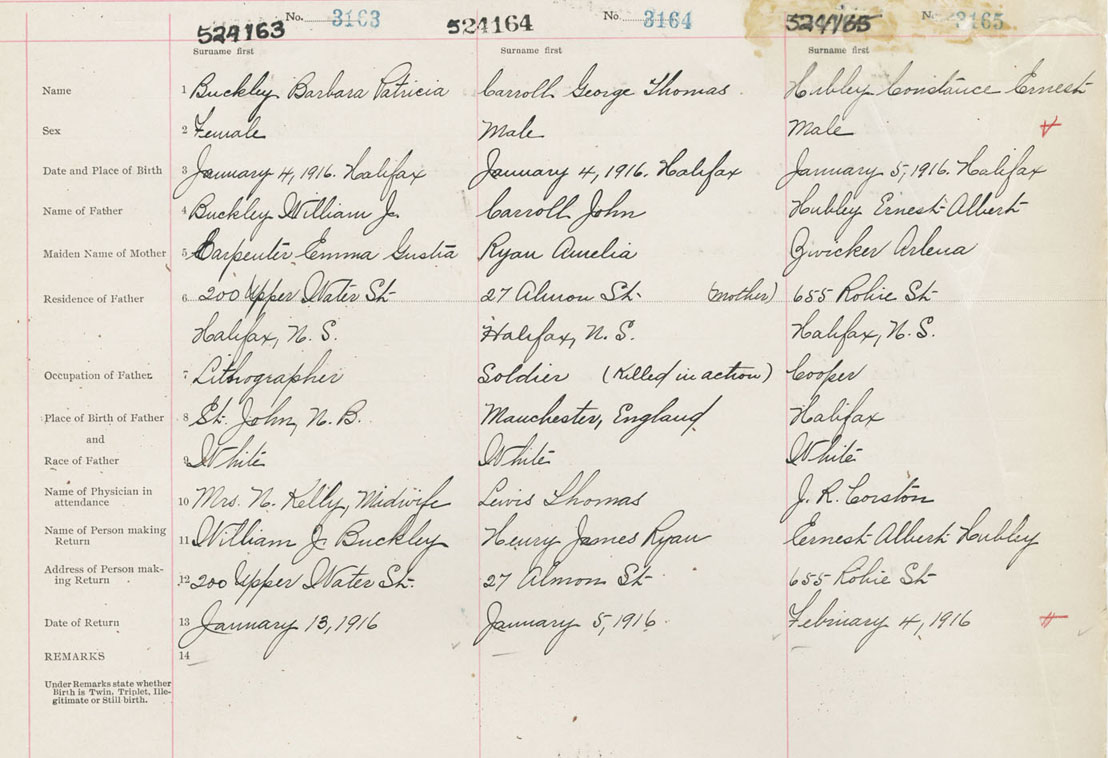 No. 3163 No. 3164 No. 3165
524163 524164 524165
Surname first Surname first Surname first
Name 1 Buckley Barbara Patricia Carroll George Thomas Hubley Constance Ernest
Sex 2 Female Male Male
Date and Place of Birth 3 January 4, 1916. Halifax January 4, 1916. Halifax January 5, 1916. Halifax
Name of Father 4 Buckley William J. Carroll John Hubley Ernest Albert
Maiden Name of Mother 5 Carpenter Emma Gustia Ryan Amelia Zwicker Arlena
Residence of Father 6 200 Upper Water St. 27 Almon St. (mother) 655 Robie St.
Halifax, N. S. Halifax, N. S. Halifax, N. S.
Occupation of Father. 7 Lithographer Soldier (Killed in action) Cooper
Place of Birth of Father 8 St. John, N. B. Manchester, England Halifax
and
Race of Father 9 White White White
Name of Physician in
attendance 10 Mrs. N. Kelly, Midwife Lewis Thomas J. R. Corston
Name of Person making
Return 11 William J. Buckley Henry James Ryan Ernest Albert Hubley
Address of Person mak-
ing Return 12 200 Upper Water St. 27 Almon St. 655 Robie St.
Date of Return 13 January 13, 1916 January 5, 1916. February 4, 1916
REMARKS 14
Under Remarks state whether
Birth is Twin, Triplet, Ille-
gitimate or Still birth.